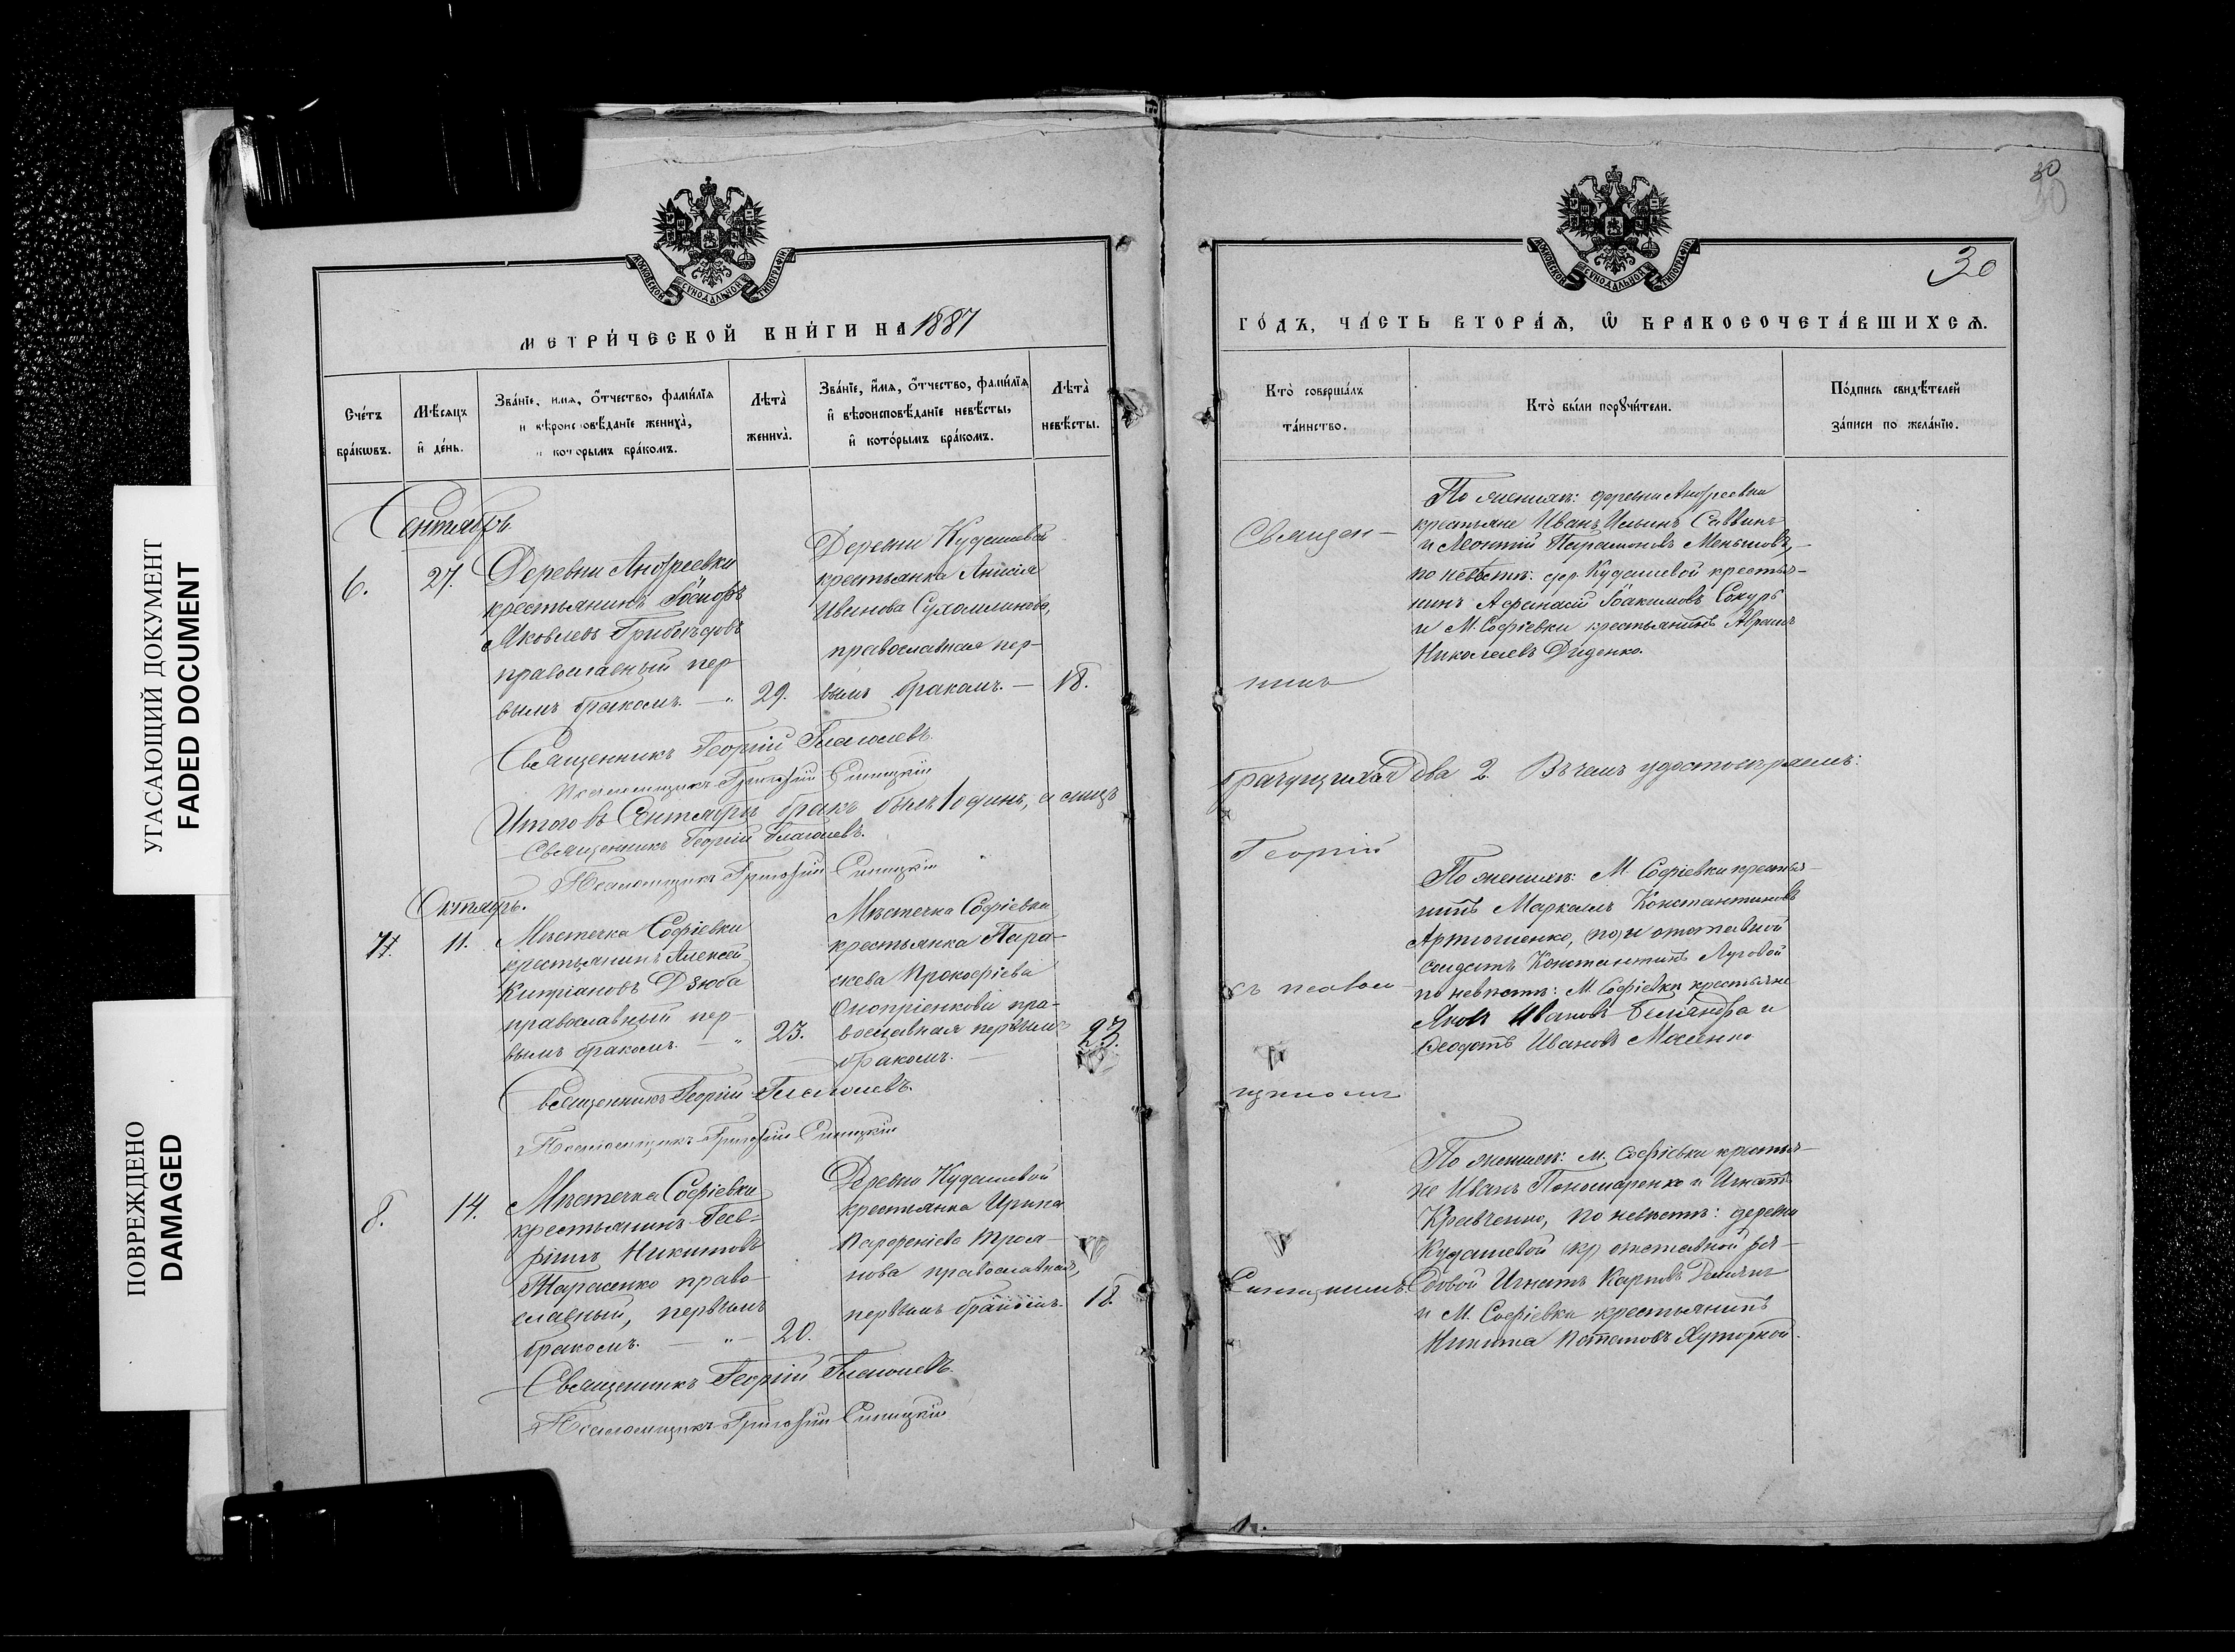 УГАСАЮЩИЙ ДОКУМЕНТ
FADED DOCUMENT
ПОВРЕЖДЕНО
DAMAGED
МОСКОВСКОЙ СѴНОДАЛЬНОЙ ТИПОГРАФІИ
МЕТРИ́ЧЕСКОЙ КНИ́ГИ НА 1887
Сче́тъ бра́кωвъ.
Мѣ́сяцъ и҆ де́нь.
Зва́нїе, и҆мя, ѻ҆́тчество, фами́лїя
и вѣроисповѣ́данїе женихà,
и кото́рымъ бра́комъ.
Лѣтà женихà.
Зва́нїе, и҆́мя, ѻ҆́тчество, фами́лїя
и҆ вѣроисповѣ́данїе невѣ́сты,
и҆ кото́рымъ бра́комъ.
Лѣтà невѣ́сты.
Сентябрь
6.
27.
Деревни Андреевки
крестьянинъ Іосифъ
Яковлевъ Грибоѣдовъ
православный пер-
вымъ бракомъ. — „
29.
Деревни Кудашевой
крестьянка Анисія
Иванова Сухомлинова,
православная пер-
вымъ бракомъ. —
18.
Священникъ Георгій Глаголевъ.
Псаломщикъ Григорій Синицкій
Итого въ Сентябрѣ бракъ былъ 1 одинъ, а лицъ
Священникъ Георгій Глаголевъ.
Псаломщикъ Григорій Синицкій
Октябрь.
7.
11.
Мѣстечка Софіевки
крестьянинъ Алексѣй
Кипріановъ Дзюба
православный пер-
вымъ бракомъ. — „
23.
Мѣстечка Софіевки
крестьянка Пара-
скева Прокофіева
Оноприенкова пра-
вославная первымъ
бракомъ. —
23.
Священникъ Георгій Глаголевъ.
Псаломщикъ Григорій Синицкій
8.
14.
Мѣстечка Софіевки
крестьянинъ
Никитовъ
Тарасенко право-
славный, первымъ
бракомъ. — „ —
20.
Деревни Кудашевой
крестьянка Ирина
Парфеніева Троя-
нова православная,
первымъ бракомъ.
18.
Священникъ Георгій Глаголевъ.
Псаломщикъ Григорій Синицкій
30
30
30
МОСКОВСКОЙ СѴНОДАЛЬНОЙ ТИПОГРАФІИ
ГО́ДЪ, ЧА́СТЬ ВТОРА́Я, Ѽ БРАКОСОЧЕТА́ВШИХСЯ.
Кто̀ соверша́лъ
та́инство.
Кто̀ бы́ли порꙋчи́тели.
По́дпись свидѣ́телей
за́писи по жела́нїю.
Священ-
никъ
Георгій
съ псалом-
щикомъ
Синицкимъ.
По женихѣ: деревни Андреевки
крестьяне Иванъ Ильинъ Саввинъ
и Леонтій Парамоновъ Меньшовъ, —
по невѣстѣ: дер. Кудашевой крестья-
нинъ Афанасій Іоакимовъ Сокуръ
и М. Софіевки крестьянинъ
Николаевъ Диденко.
брачущихся два 2. Въ чемъ удостовѣряемъ:
По женихѣ: М. Софіевки крестья-
нинъ Константиновъ
Артюшенко, и отставной
солдатъ Константинъ Луговой
по невѣстѣ: М. Софіевки крестьяне
Яковъ Ивановъ и
Феодотъ Ивановъ
По женихѣ: М. Софіевки крестья-
не Иванъ Пономаренко и Игнатъ
Кравченко, по невѣстѣ: деревни
Кудашевой отставной ря-
довой Игнатъ Карповъ
и М. Софіевки крестьянинъ
Никита Хуторной.